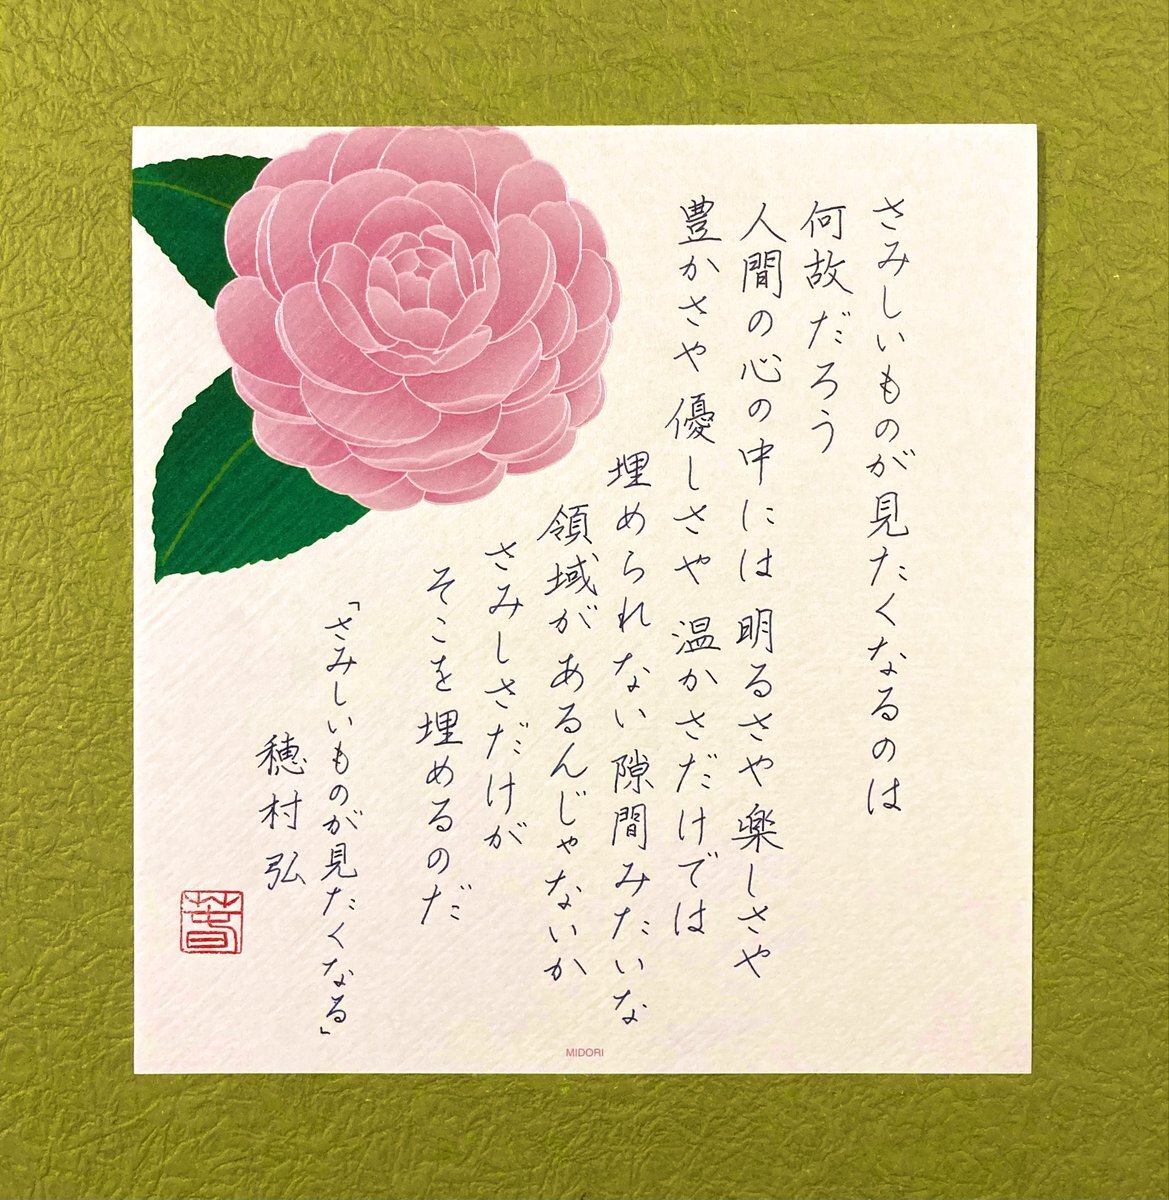 さみしいものが見たくなるのは
何故だろう
人間の心の中には 明るさや楽しさや
豊かさや 優しさや 温かさだけでは
埋められない 隙間みたいな
領域が あるんじゃないか
さみしさだけが
そこを埋めるのだ
「さみしいものが見たくなる」
穂村 弘
MIDORI